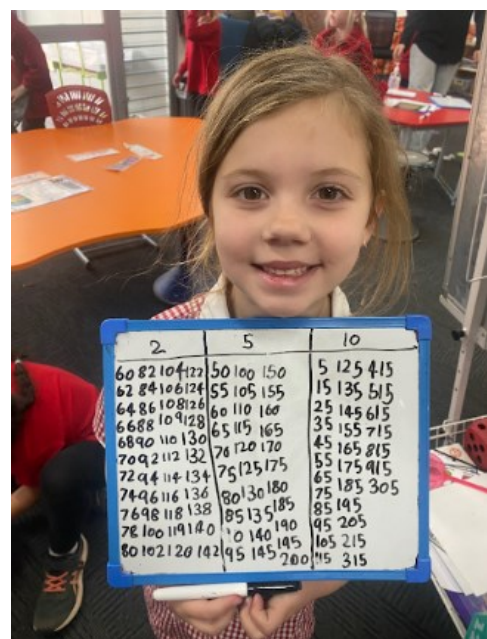 2 5 10
60 82 104 122 50 100 150 5 125 415
62 84 106 124 55 105 155 15 135 515
64 86 108 126 60 110 160 25 145 615
66 88 109 128 65 115 165 35 155 715
68 90 110 130 70 120 170 45 165 815
70 92 112 132 75 125 175 55 175 915
72 94 114 134 80 130 180 65 185 305
74 96 116 136 85 135 185 75 195
76 98 118 138 90 140 190 85 205
78 100 119 140 95 145 195 95 215
80 102 120 142 200 105 315